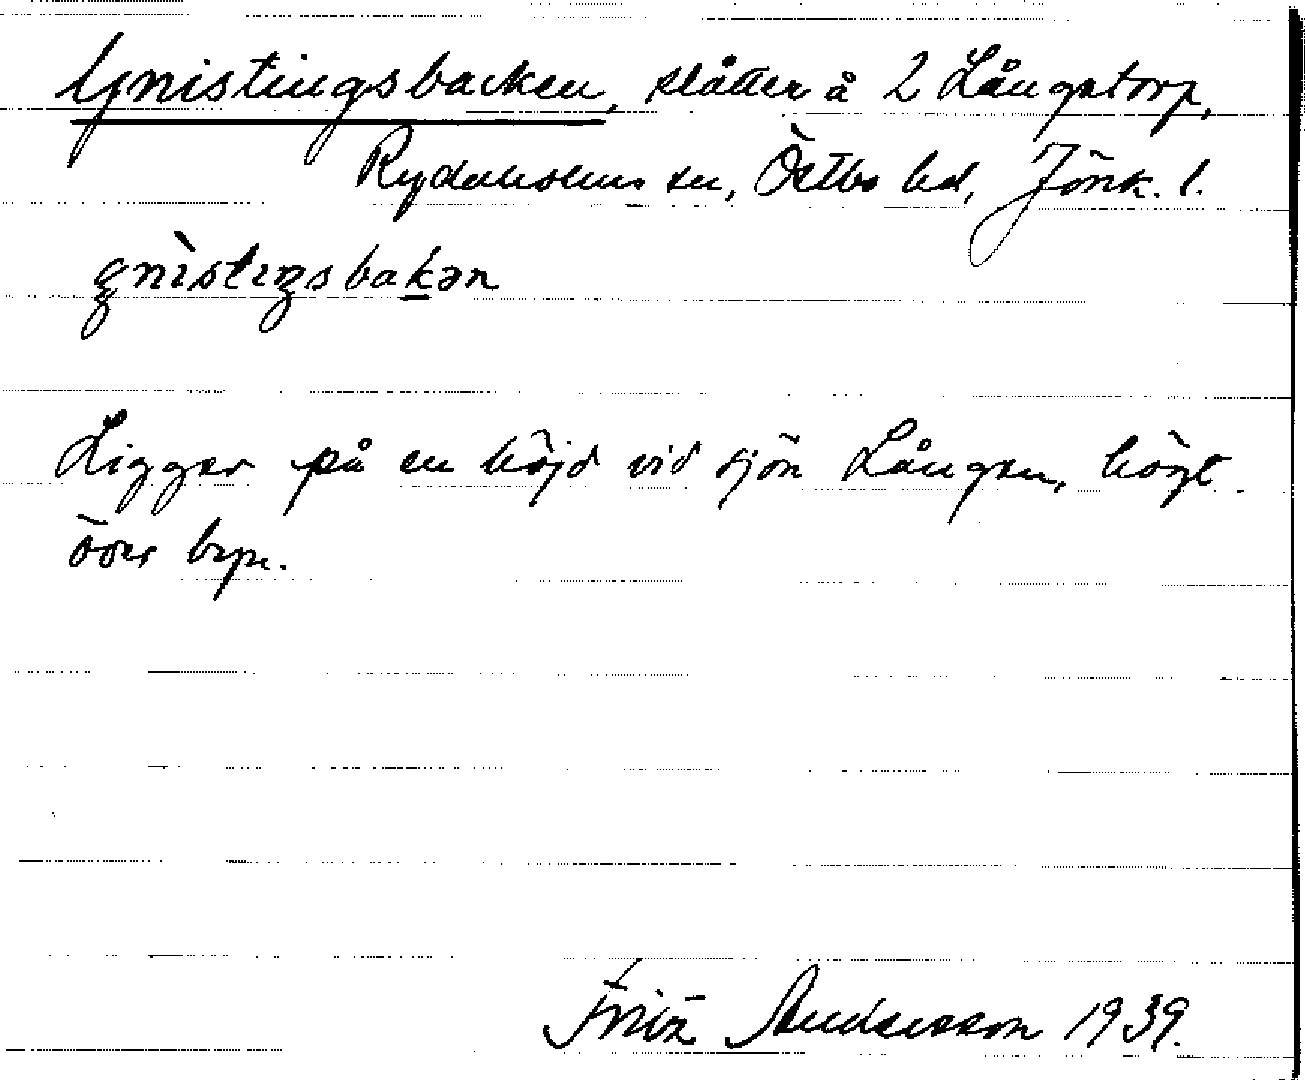 Gnistingsbacken, slåtter å 2 Långstorp,
Rydaholms sn, Östbo hd, Jönk. l.
gnìstiŋsbakən
Ligger på en höjd vid sjön Lången, högt
över byn.
Fritz Andersson 1939.